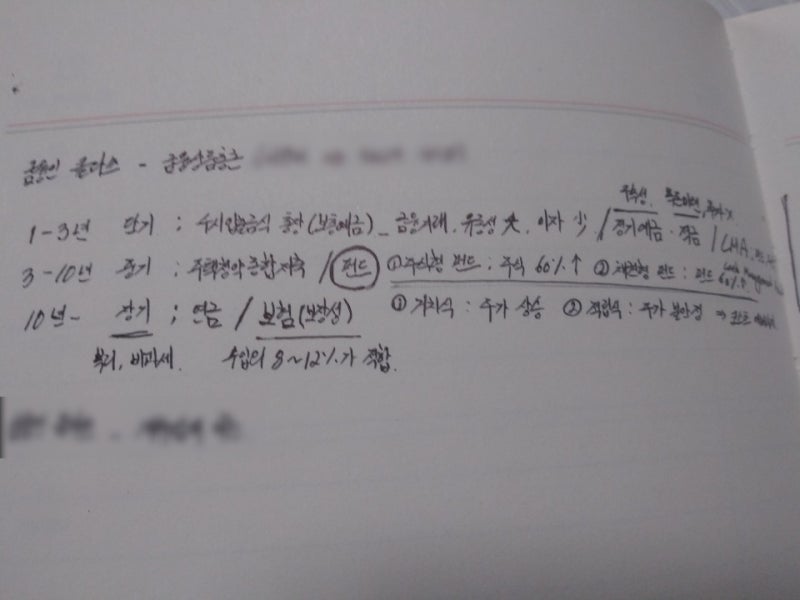 금융인 플러스 - 금융상품
수익성
1-3년 단기 ; 수시입출금식 통장(보통예금) _ 금융거래. 유동성 大. 이자 少 / 정기예금 · 적금 / CMA.
3-10년 중기 ; 주택청약종합저축 / 펀드 ① 주식형 펀드 ; 주식 60%↑ ② 채권형 펀드 ; 펀드 60%↑
10년~ 장기 ; 연금 / 보험(보장성) ① 거치식 : 주가 상승 ② 적립식 : 주가 불안정 ⇒ 코스트
복리, 비과세. 수입의 8~12%가 적합.